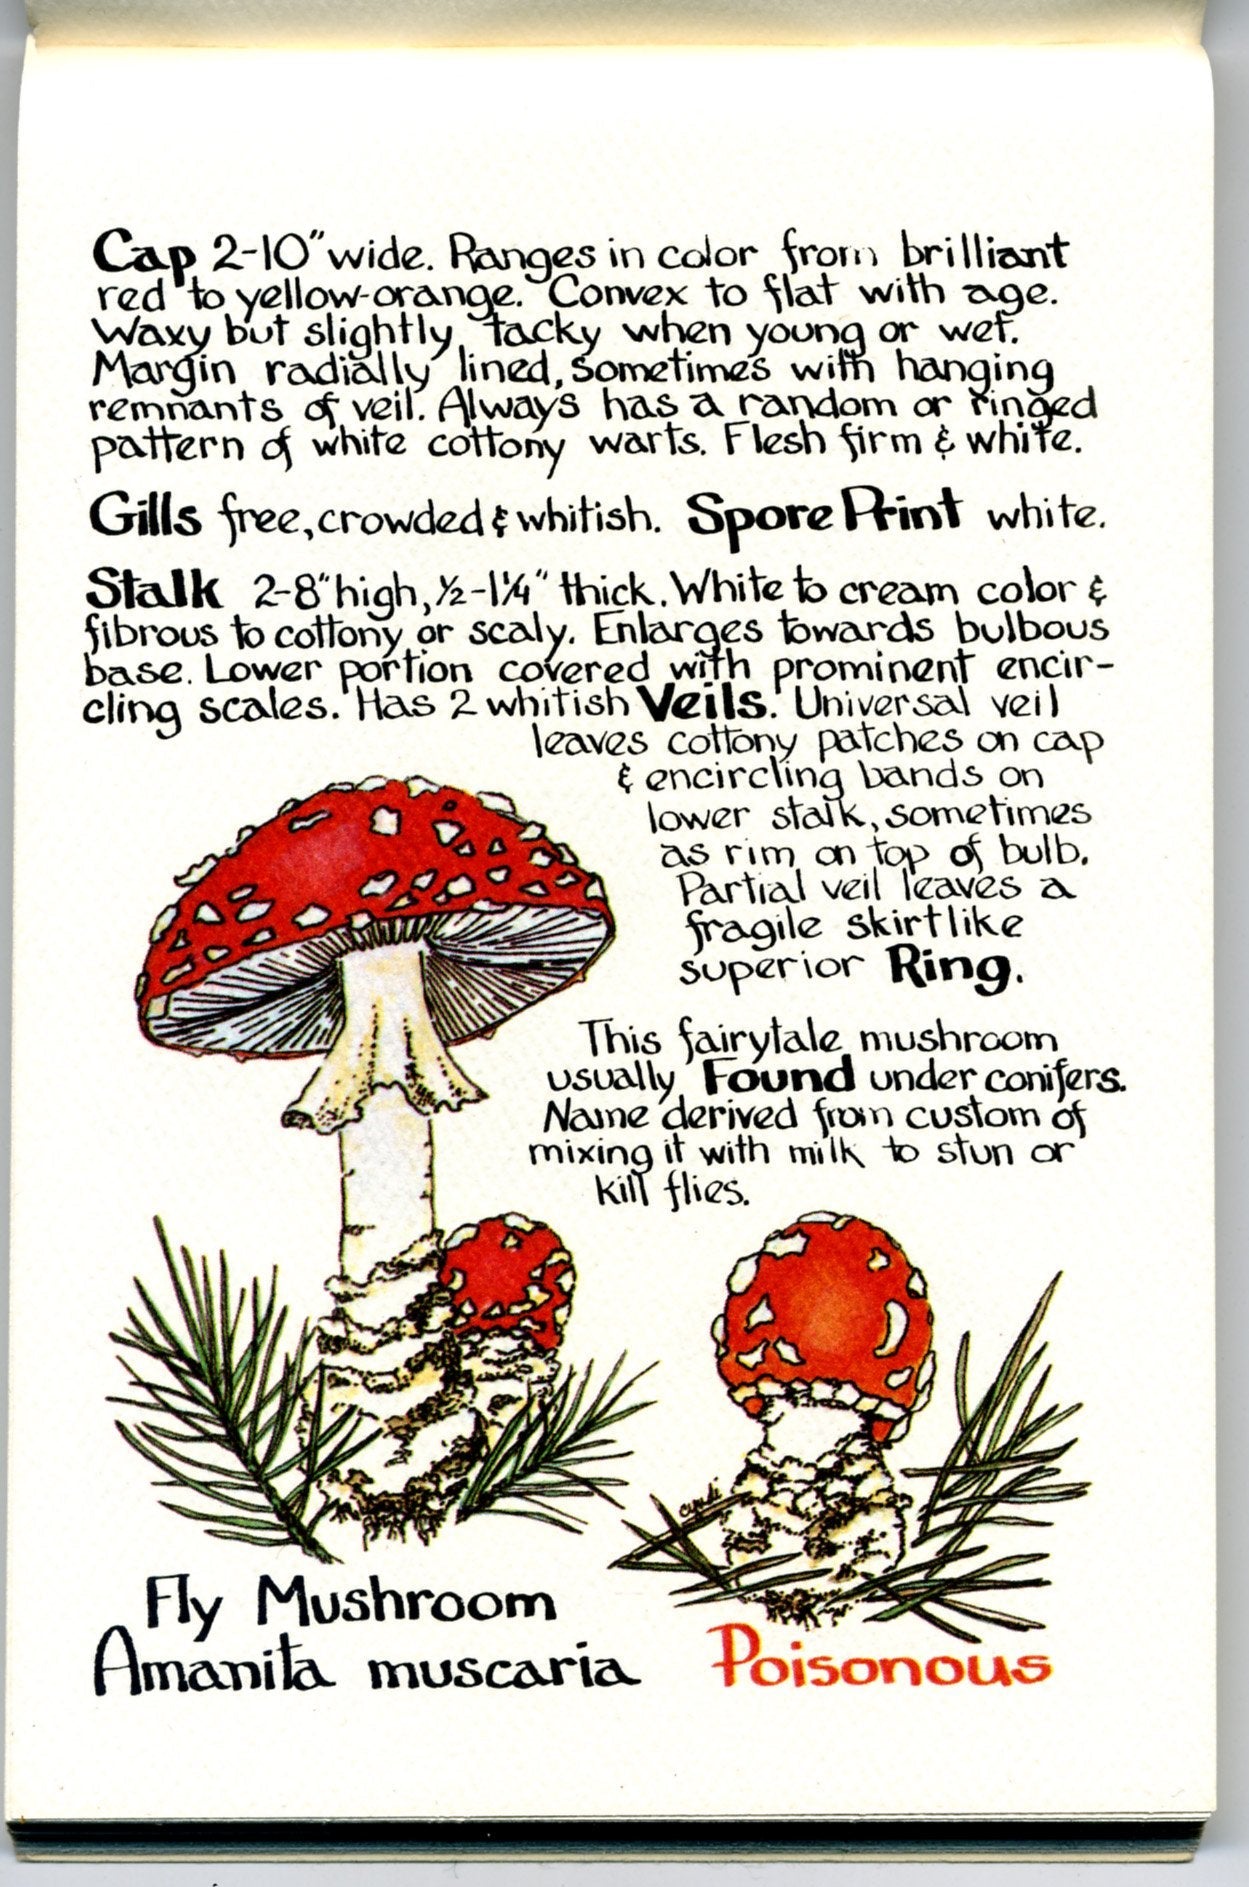 Cap 2-10" wide. Ranges in color from brilliant
red to yellow-orange. Convex to flat with age.
Waxy but slightly tacky when young or wet.
Margin radially lined, sometimes with hanging
remnants of veil. Always has a random or ringed
pattern of white cottony warts. Flesh firm & white.
Gills free, crowded & whitish. Spore Print white.
Stalk 2-8" high, ½-1¼" thick. White to cream color &
fibrous to cottony or scaly. Enlarges towards bulbous
base. Lower portion covered with prominent encir-
cling scales. Has 2 whitish Veils. Universal veil
leaves cottony patches on cap
& encircling bands on
lower stalk, sometimes
as rim on top of bulb.
Partial veil leaves a
fragile skirtlike
superior Ring.
This fairytale mushroom
usually Found under conifers.
Name derived from custom of
mixing it with milk to stun or
kill flies.
Cyndi
Fly Mushroom
Amanita muscaria
Poisonous